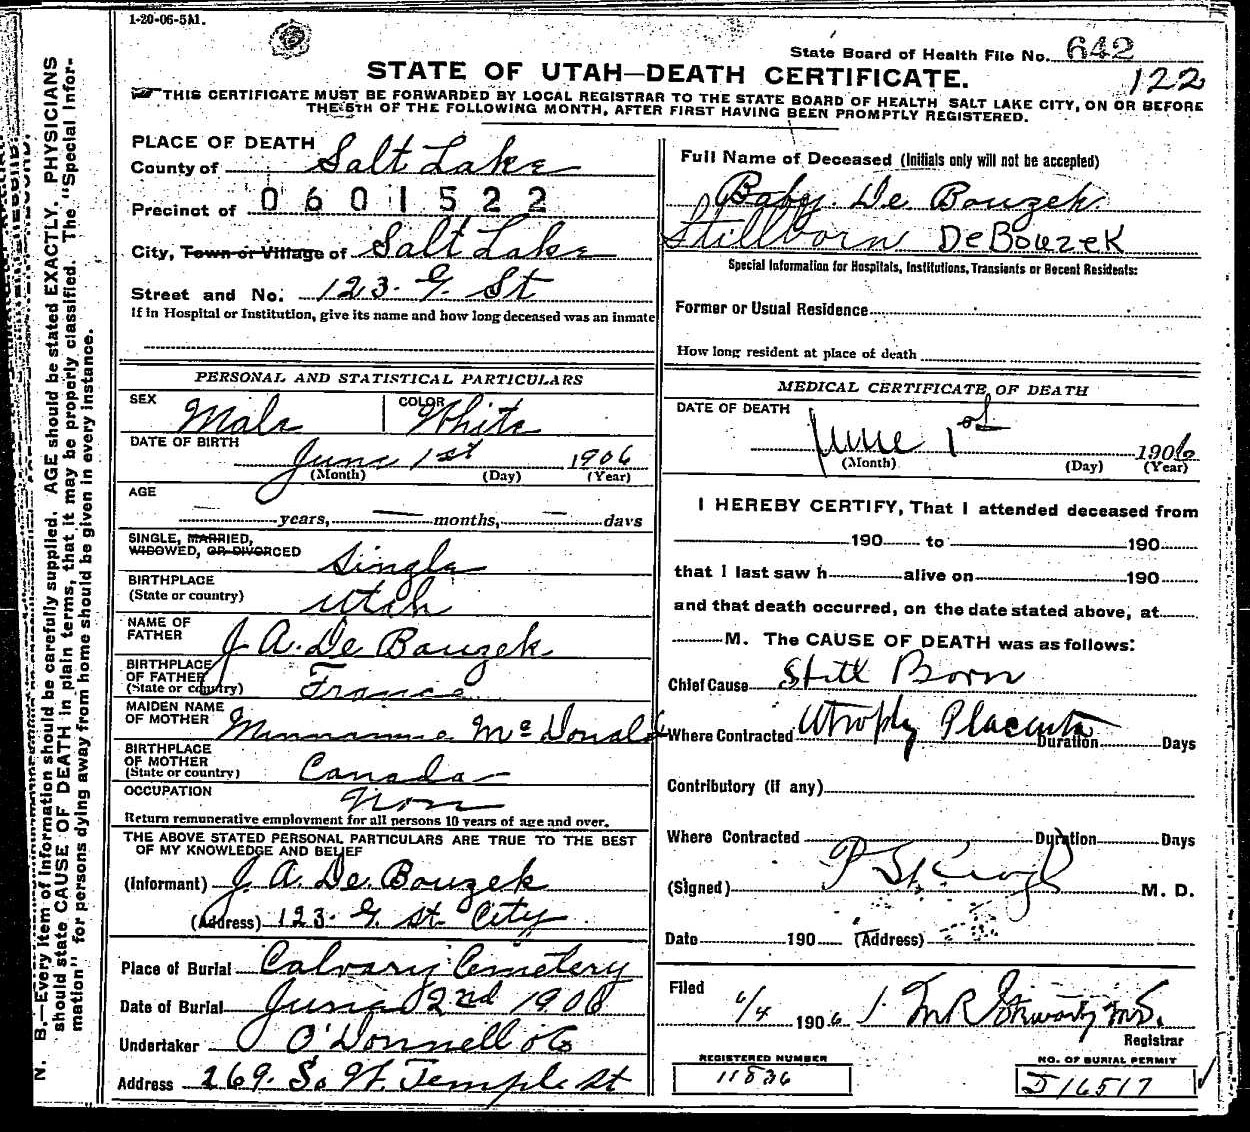 1-20-06-5M.
State Board of Health File No. 642
122
STATE OF UTAH—DEATH CERTIFICATE.
THIS CERTIFICATE MUST BE FORWARDED BY LOCAL REGISTRAR TO THE STATE BOARD OF HEALTH SALT LAKE CITY, ON OR BEFORE
THE 5TH OF THE FOLLOWING MONTH, AFTER FIRST HAVING BEEN PROMPTLY REGISTERED.
PLACE OF DEATH
County of Salt Lake
Precinct of 0601522
City, Town or Village of Salt Lake
Street and No. 123. G. St
If in Hospital or Institution, give its name and how long deceased was an inmate
Full Name of Deceased (Initials only will not be accepted)
Baby. De Bouzek.
Stillborn DeBouzek
Special Information for Hospitals, Institutions, Transients or Recent Residents:
Former or Usual Residence
How long resident at place of death
PERSONAL AND STATISTICAL PARTICULARS
SEX Male COLOR White
DATE OF BIRTH
June 1st 1906
(Month) (Day) (Year)
AGE
— years, — months, — days
SINGLE, MARRIED,
WIDOWED, OR DIVORCED Single
BIRTHPLACE
(State or country) Utah
NAME OF
FATHER J. A. De Bouzek
BIRTHPLACE
OF FATHER
(State or country) France
MAIDEN NAME
OF MOTHER McDonald
BIRTHPLACE
OF MOTHER
(State or country) Canada
OCCUPATION
Return remunerative employment for all persons 10 years of age and over.
THE ABOVE STATED PERSONAL PARTICULARS ARE TRUE TO THE BEST
OF MY KNOWLEDGE AND BELIEF
(Informant) J. A. De. Bouzek
(Address) 123. G. St. City
Place of Burial Calvary Cemetery
Date of Burial June 2nd 1906
Undertaker O'Donnell & Co
Address 269. So W. Temple St
MEDICAL CERTIFICATE OF DEATH
DATE OF DEATH
June 1st 1906
(Month) (Day) (Year)
I HEREBY CERTIFY, That I attended deceased from
190 to 190
that I last saw h alive on 190
and that death occurred, on the date stated above, at
M. The CAUSE OF DEATH was as follows:
Chief Cause Still Born
Where Contracted Atrophy Placenta Duration Days
Contributory (if any)
Where Contracted Duration Days
(Signed) M. D.
Date 190 (Address)
Filed
6/4 1906
Registrar
REGISTERED NUMBER
11836
NO. OF BURIAL PERMIT
J16517
N. B.—Every item of information should be carefully supplied. AGE should be stated EXACTLY. PHYSICIANS
should state CAUSE OF DEATH in plain terms, that it may be properly classified. The "Special Infor-
mation" for persons dying away from home should be given in every instance.